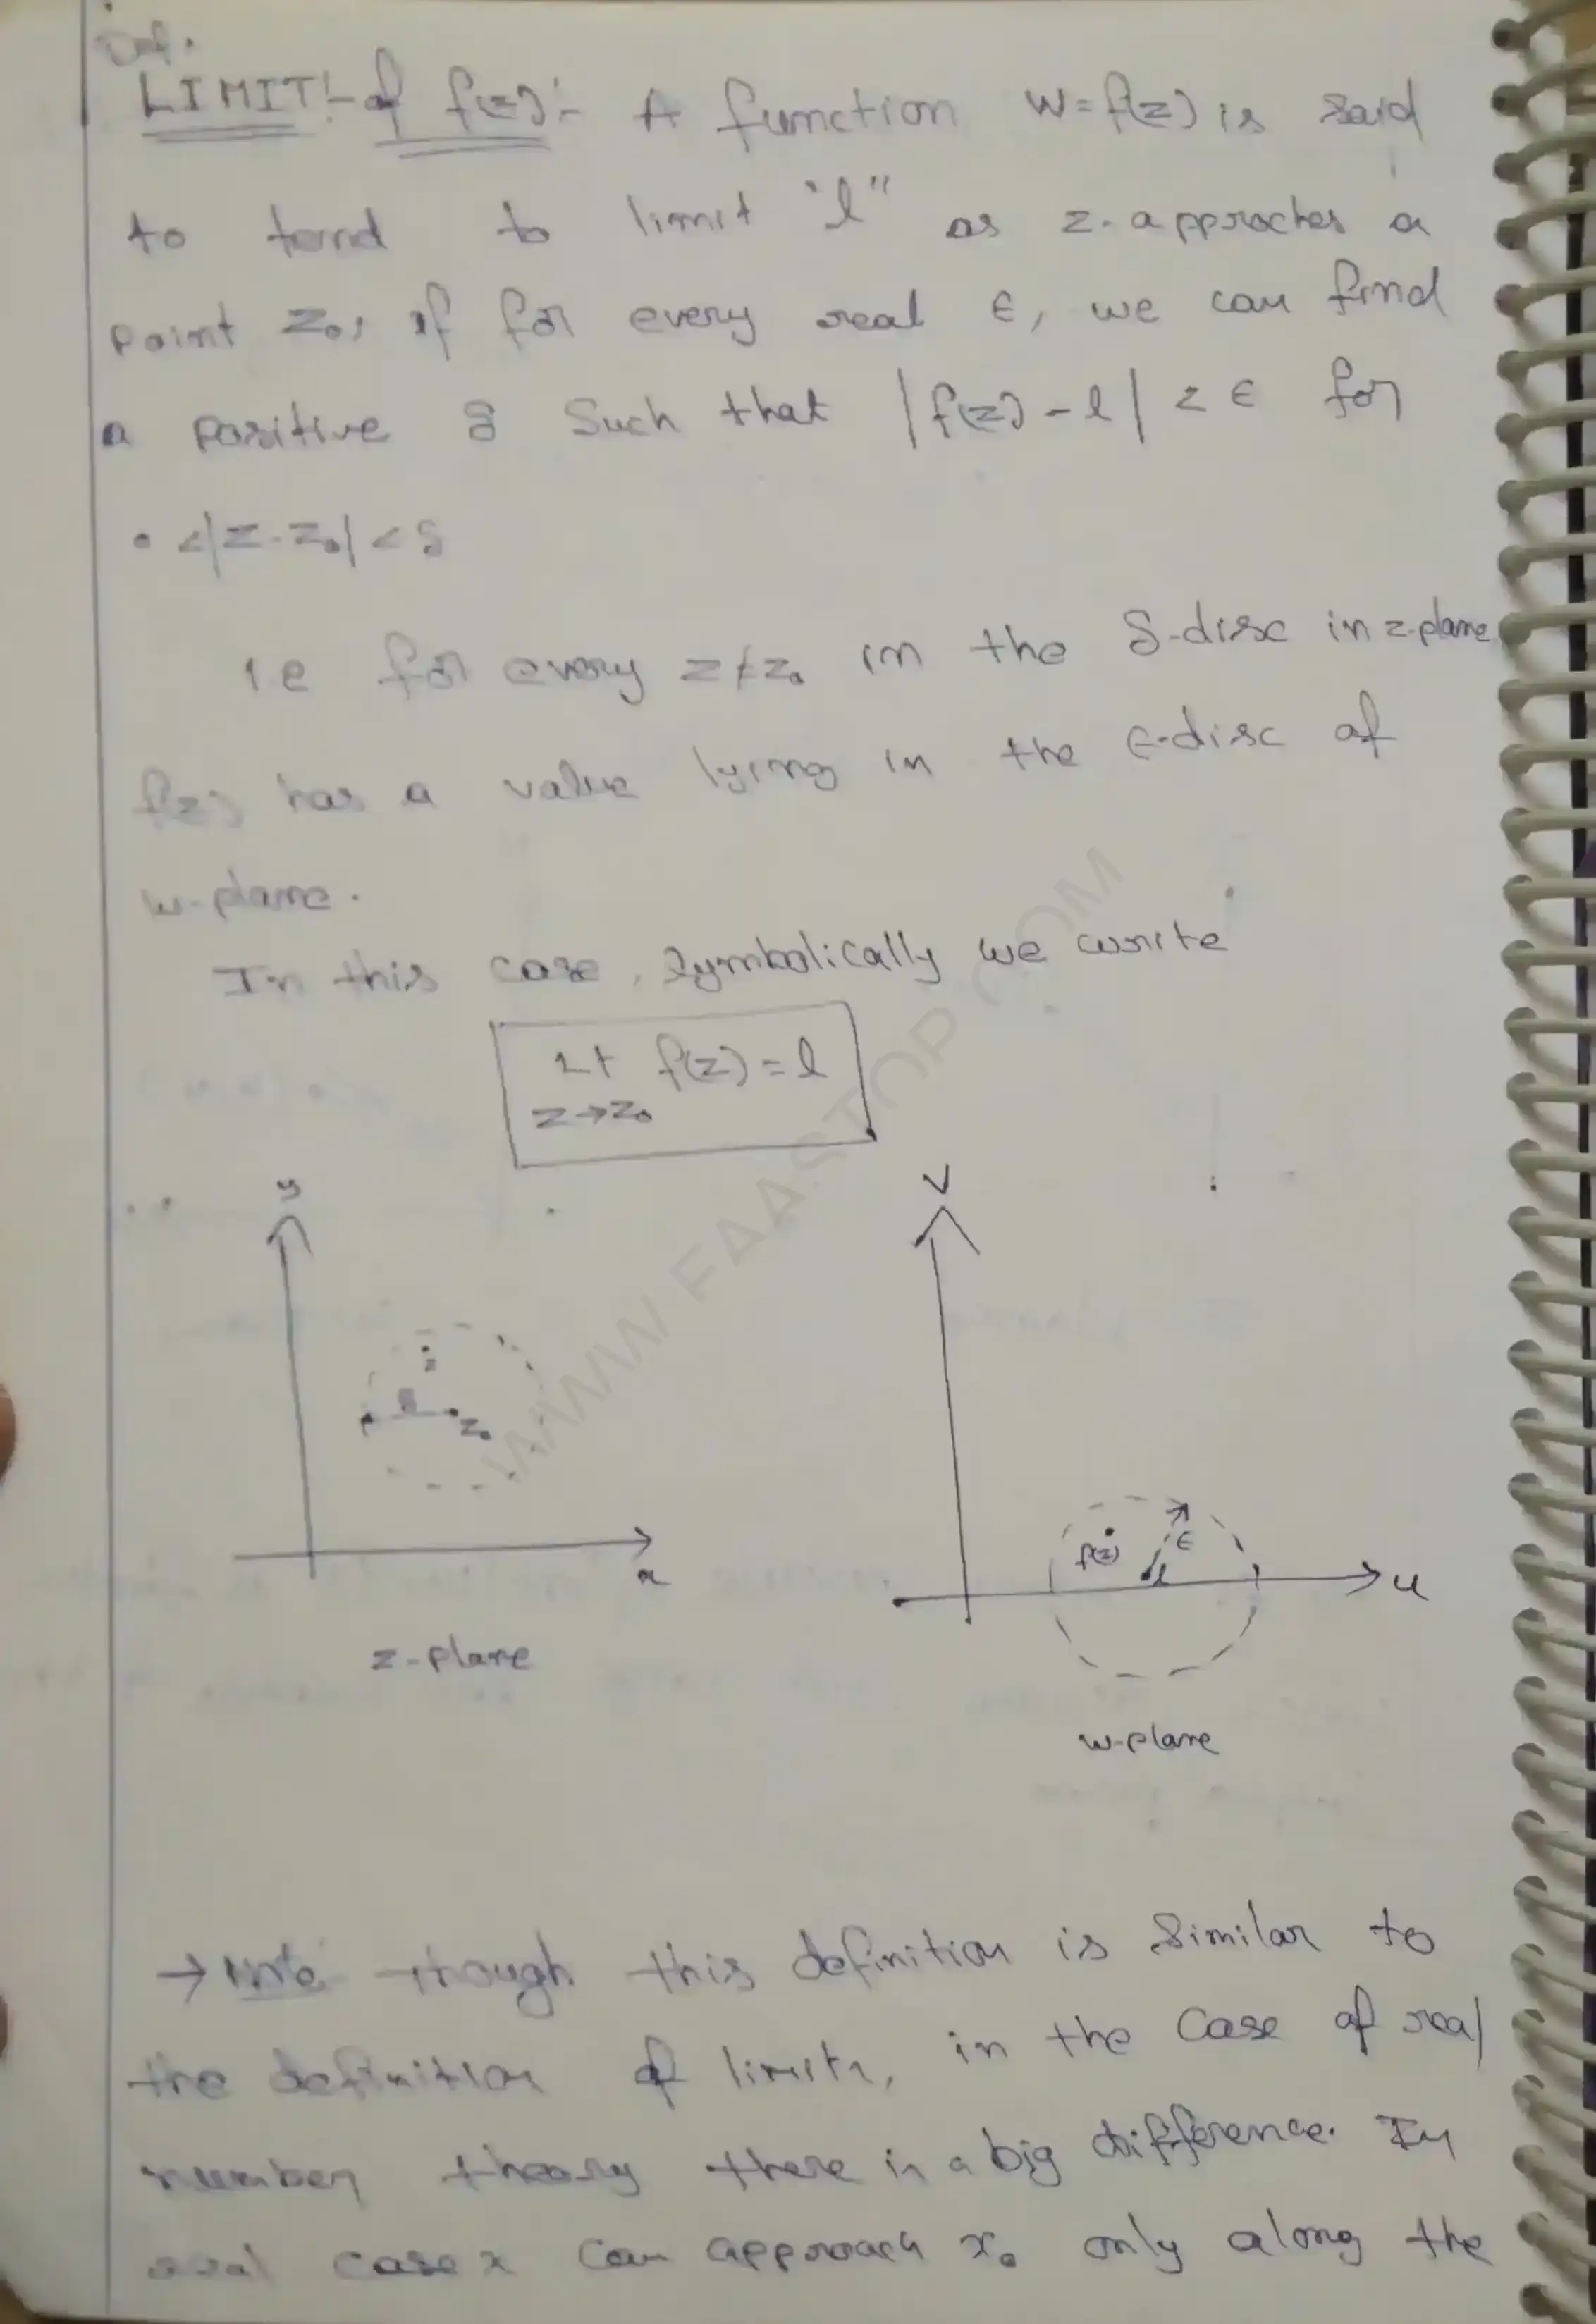 Def.
LIMIT:- of f(z):- A function W=f(z) is said
to tend to limit "l" as z-approches a
point z₀, if for every real ε, we can find
a positive δ Such that |f(z)-l| < ε for
0 <|z-z₀| < δ
i.e for every z≠z₀ in the δ-disc in z-plane
f(z) has a value lying in the ε-disc of
w-plane.
In this case, Symbolically we write
Lt f(z) = l
z→z₀
y
V
z
δ
z₀
f(z)
ε
l
x
u
z-plane
w-plane
WWW.FAASTOP.COM
→ Note though this definition is Similar to
the definition of limits, in the Case of real
number theory there is a big difference. In
real case x can approach x₀ only along the